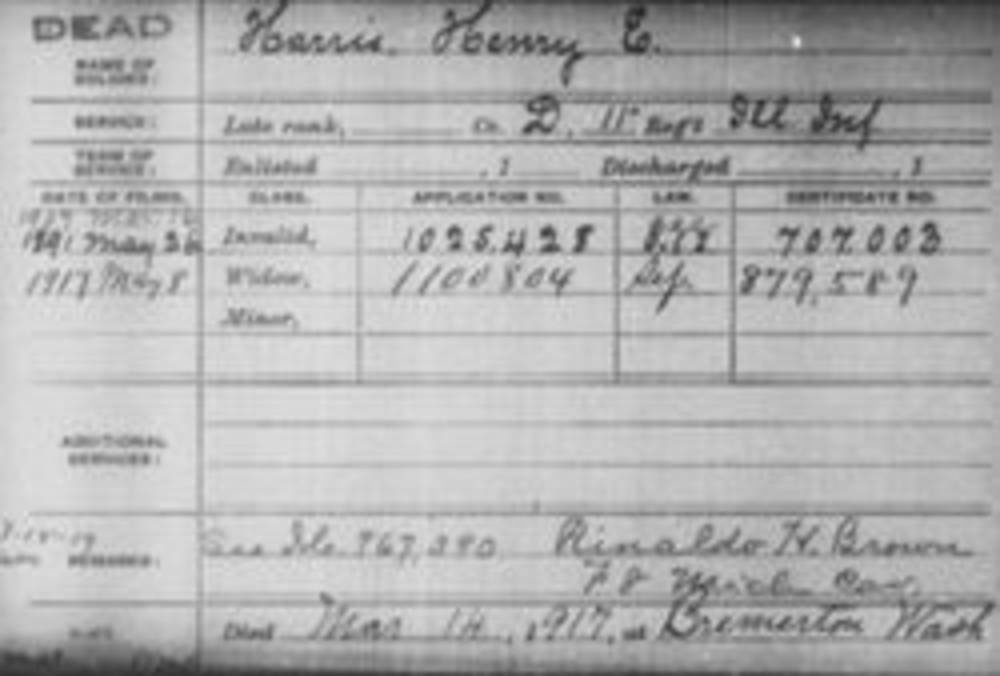 DEAD
Harris, Henry E.
NAME OF
SOLDIER:
SERVICE: Late rank, Co. D, 11" Reg't Ill Inf
TERM OF
SERVICE: Enlisted , 1 Discharged , 1
DATE OF FILING. CLASS. APPLICATION NO. LAW. CERTIFICATE NO.
1891 May 26 Invalid, 1025.428 707.003
1917 May 8 Widow, 1100804 879.589
Minor,
ADDITIONAL
SERVICES:
REMARKS: See 767,390 Rinaldo H. Brown
F 8 Mich Cav.
Died Mar 14, 1917, at Bremerton Wash